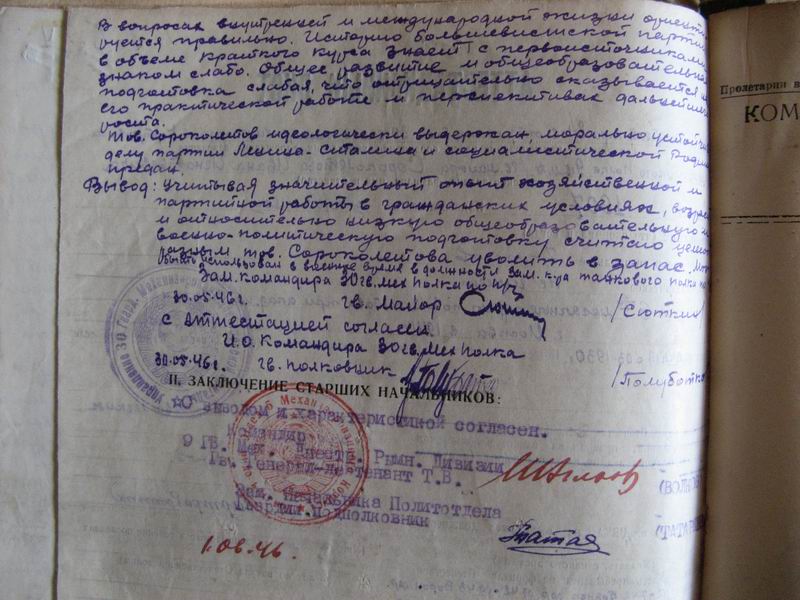 В вопросах внутренней и международной жизни ориенти
руется правильно. Историю большевистской партии
в объеме краткого курса знает, с первоисточниками
знаком слабо. Общее развитие и общеобразовательная
подготовка слабая, что отрицательно сказывается на
его практической работе и перспективах дальнейшего
роста.
Тов. Сороколетов идеологически выдержан, морально устойчив
делу партии Ленина-Сталина и социалистической Родине
предан.
Вывод: Учитывая значительный опыт хозяйственной и
партийной работы в гражданских условиях, возраст
и относительно низкую общеобразовательную и
военно-политическую подготовку считаю целесооб
разным тов. Сороколетова уволить в запас. Может
быть использован в военное время в должности зам. к-ра танкового полка по
Зам. командира 30 гв. мех полка по п/ч
30.05.46 г. гв. майор /Сюткин/
С аттестацией согласен.
И.О. Командира 30 гв. мех полка
30.05.46 г. гв. полковник /Голуботко
II. ЗАКЛЮЧЕНИЕ СТАРШИХ НАЧАЛЬНИКОВ:
С выводом и характеристикой согласен.
Командир
9 ГВ. Мех. Днестр. Рымн. Дивизии
Гв. Генерал-лейтенант Т.В. (ВОЛЬ
Зам. Начальника Политотдела
Гвардии подполковник (ТАТАР
1.06.46.
Пролетарии в
КОМ